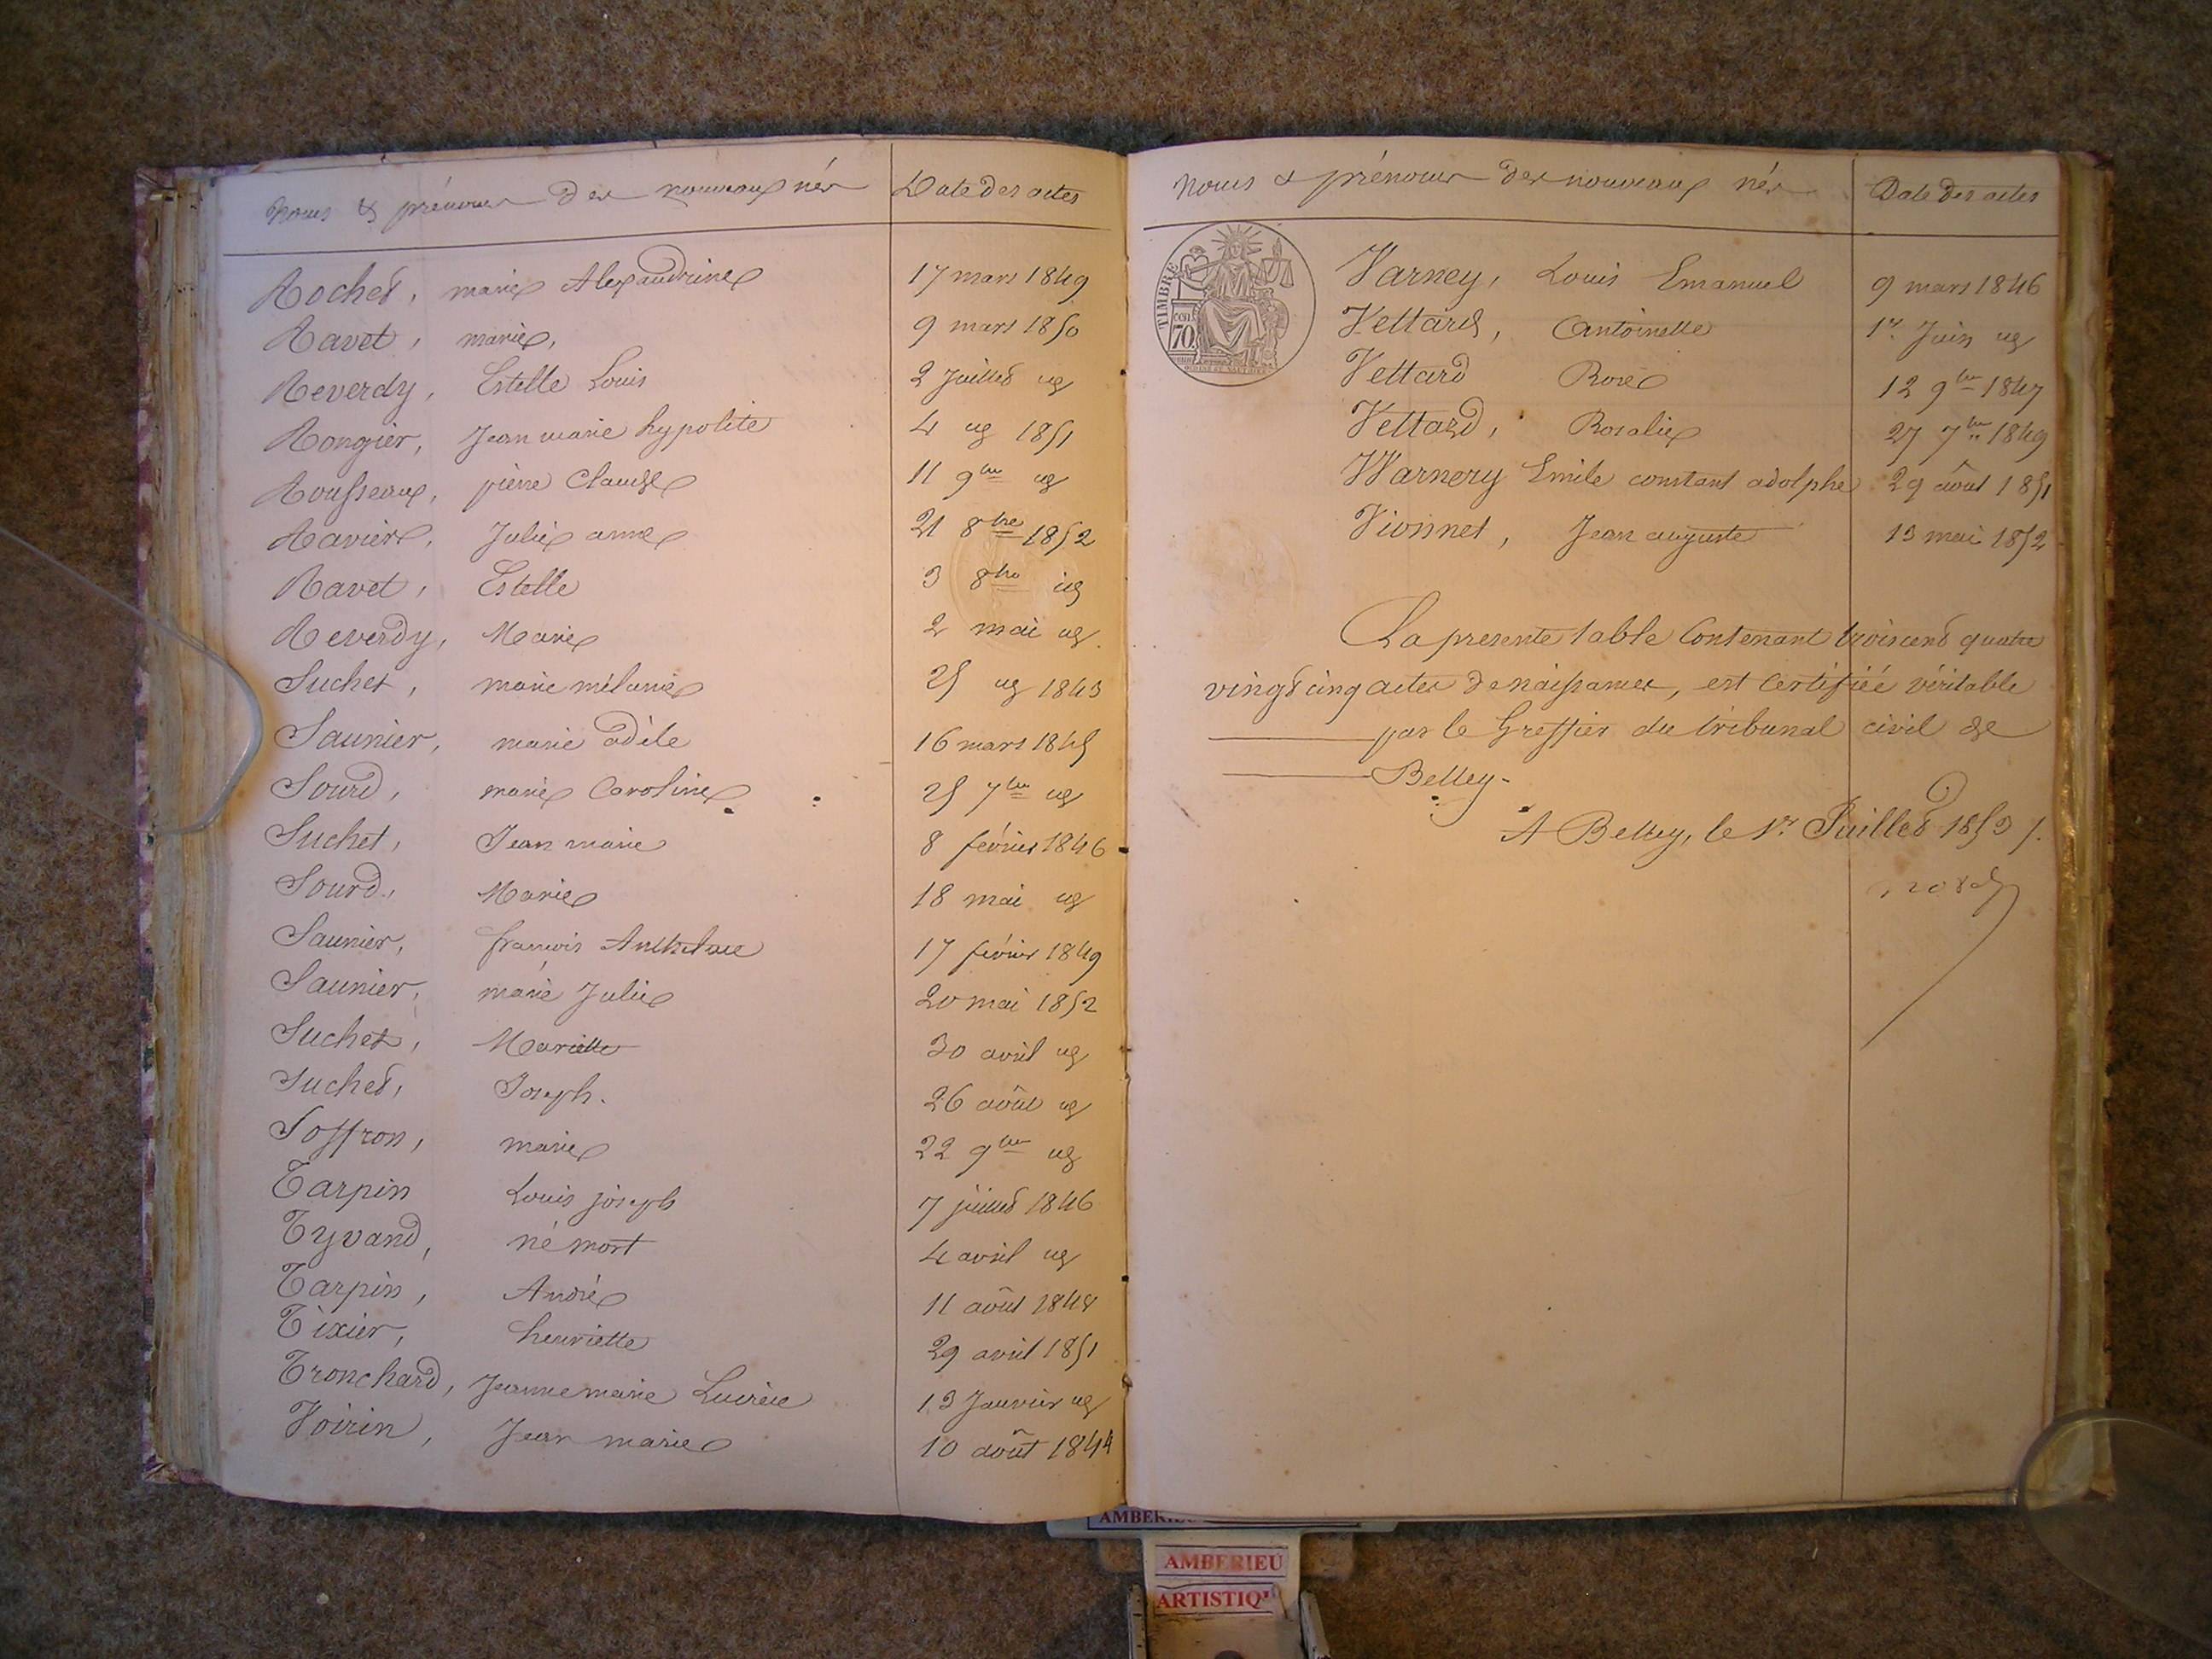 Noms & prénoms des nouveaux nés Date des actes
Rochet, marie Alexandrine 17 mars 1849
Ravet, marie, 9 mars 1850
Reverdy, Estelle Louis 2 Juillet id
Rongier, Jean marie hypolite 4 id 1851
Rousseaux, pierre Claude 11 9bre id
Ravier, Julie anne 21 8bre 1852
Ravet, Estelle 3 8bre id
Reverdy, Marie 2 mai id
Suchet, marie mélanie 25 id 1843
Saunier, marie adèle 16 mars 1845
Sourd, marie Caroline 25 7bre id
Suchet, Jean marie 8 février 1846
Sourd, Marie 18 mai id
Saunier, françois Anthelme 17 février 1849
Saunier, marie Julie 20 mai 1852
Suchet, Mariette 30 avril id
Suchet, Joseph. 26 août id
Soffron, marie 22 9bre id
Tarpin Louis joseph 7 juillet 1846
Tyvand, né mort 4 avril id
Tarpin, André 11 août 1848
Tixier, henriette 29 avril 1851
Tronchard, Jeanne marie Lucrèce 13 Janvier id
Voirin, Jean marie 10 août 1844
Noms & prénoms des nouveaux nés Date des actes
TIMBRE
70
Varney, Louis Emanuel 9 mars 1846
Vettard, Antoinette 1er Juin id
Vettard Rose 12 9bre 1847
Vettard, Rosalie 27 7bre 1849
Warnery Emile constant adolphe 29 août 1851
Vionnet, Jean auguste 13 mai 1852
La presente table Contenant trois cent quatre
vingt cinq actes de naissances, est Certifiée véritable
par le Greffier du tribunal civil de
Belley.
A Belley, le 1er Juillet 1853 /.
AMBERIEU
AMBERIEU
ARTISTIQU